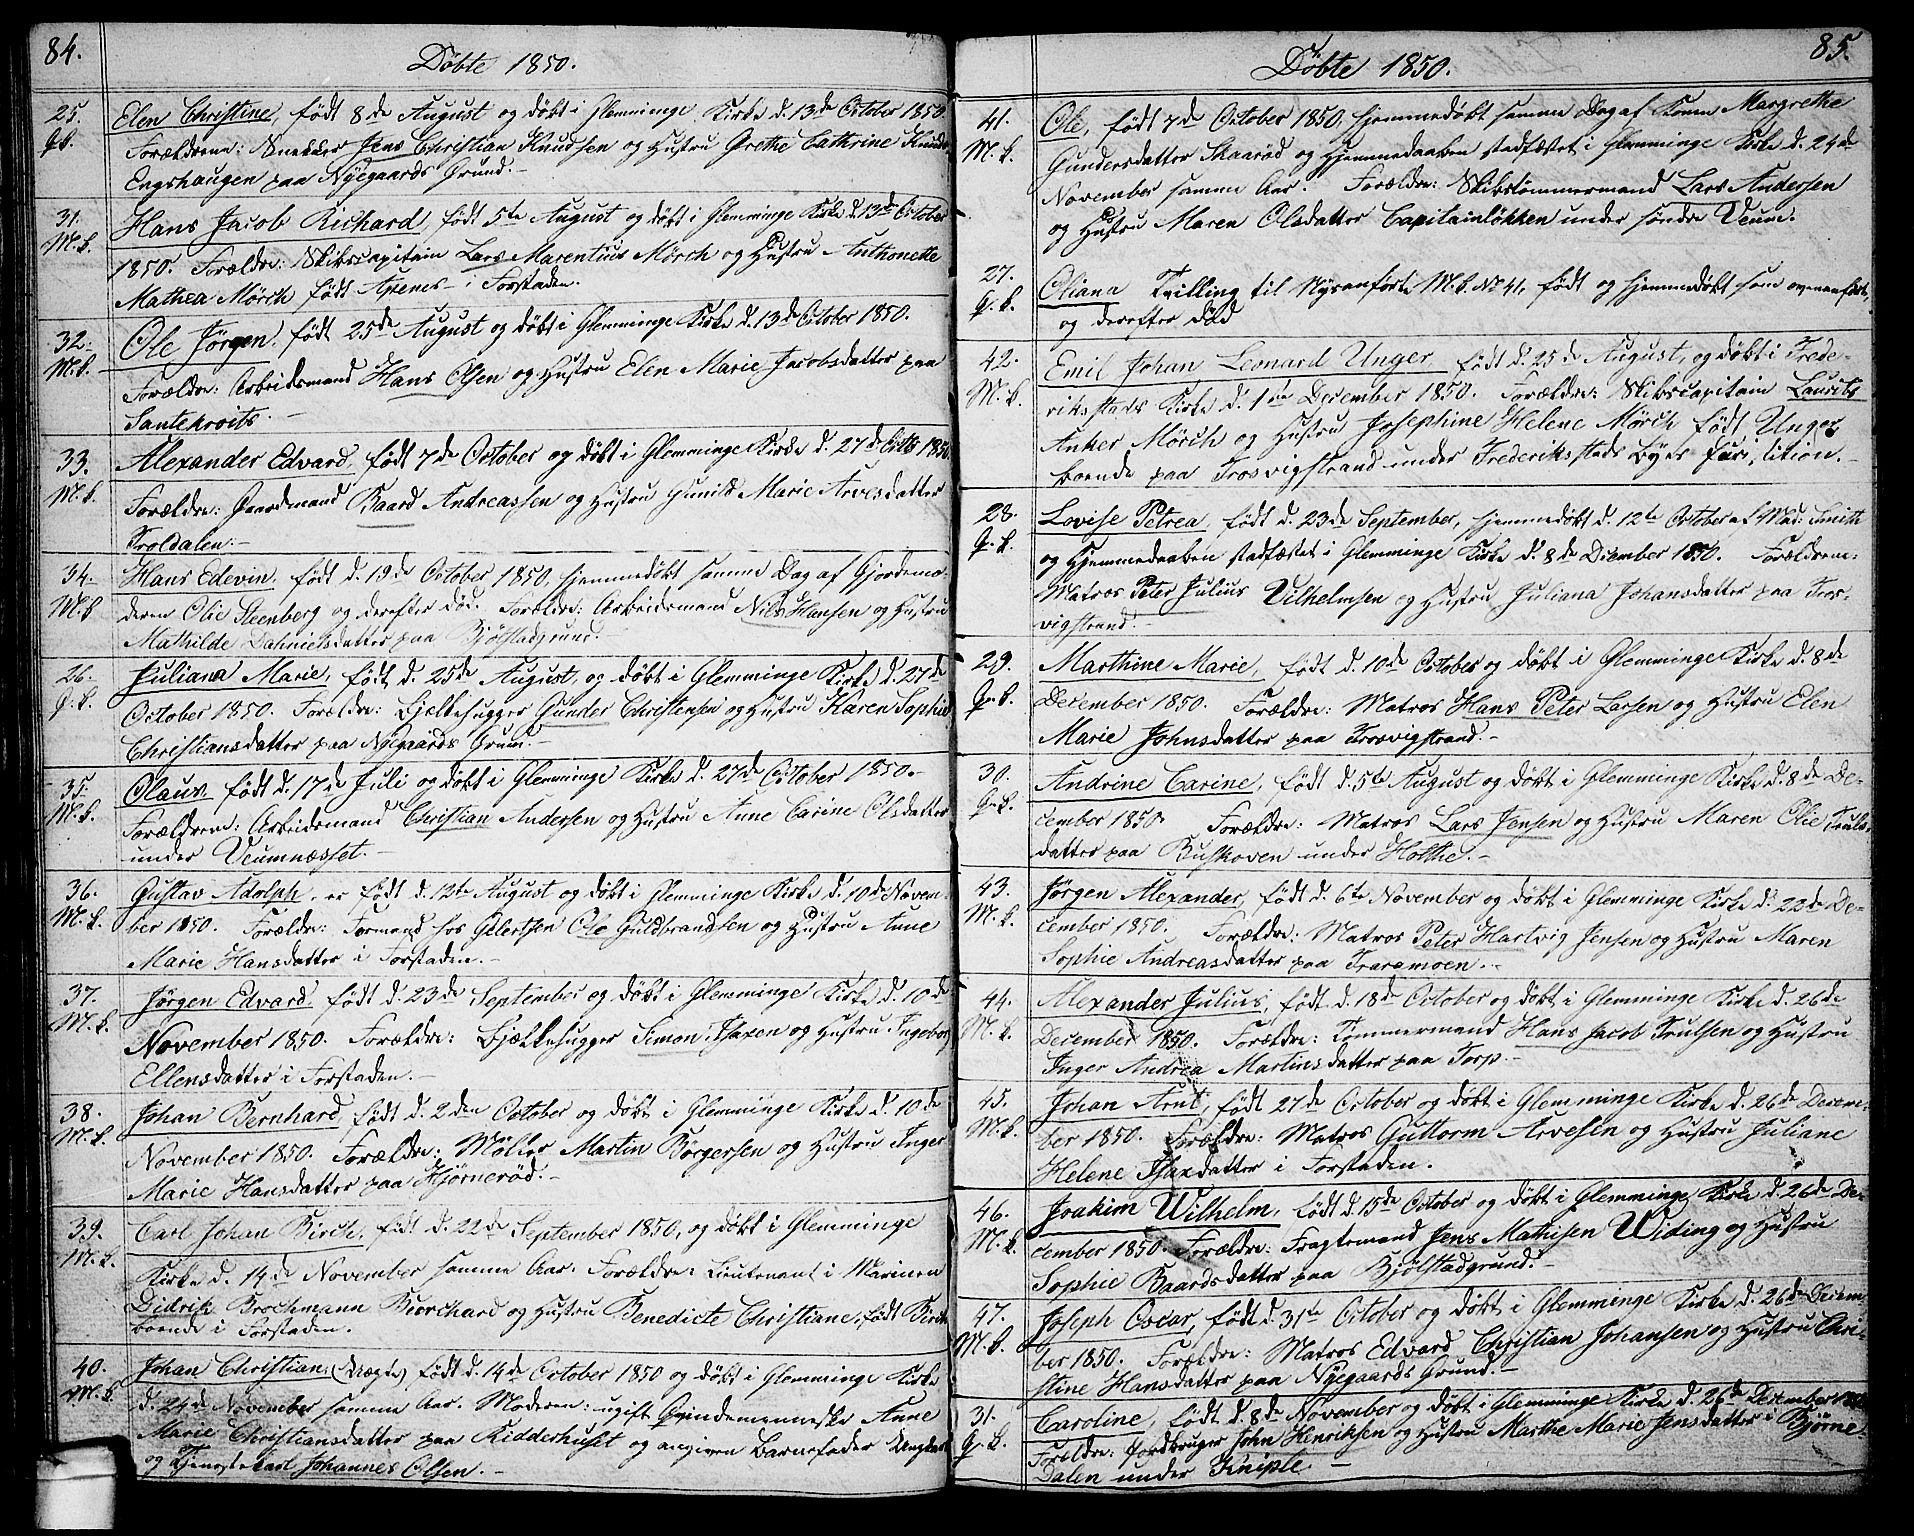 84.
Döbte 1850.
25. Elen Christine, födt 8de August og döbt i Glemminge Kirke d. 13de October 1850.
Q.k. Forældrene: Snekker Jens Christian Knudsen og Hustru Grethe Cathrine
Engshaugen paa Nyegaards Grund.-
31. Hans Jacob Richard, födt 5te August og döbt i Glemminge Kirke d. 13de October
M.k. 1850. Forældre: Skibscapitain Lars Marentius Mörch og Hustru Anthonette
Mathea Mörch födt Apenes - i Forstaden.
32. Ole Jörgen, födt 25de August og döbt i Glemminge Kirke d. 13de October 1850.
M.k. Forældre: Arbeidsmand Hans Olsen og Hustru Elen Marie Jacobsdatter paa
-
33. Alexander Edvard, födt 7de October og döbt i Glemminge Kirke d. 27de Octb 1850
M.k. Forældre: Gaardmand Baard Andreassen og Hustru Gunild Marie Arvesdatter
Troldalen.-
34. Hans Edevin, födt d. 19de October 1850, hjemmedöbt samme Dag af Gjordemo-
M.k. deren Olie Steenberg og derefter död. Forældre: Arbeidsmand Nils Hansen og Hustru
Mathilde Dahnielsdatter paa Bjölstadgrund.-
26. Juliana Marie, födt d. 25de August, og döbt i Glemminge Kirke d. 27de
Q.k. October 1850. Forældre: Bjelkehugger Gunder Christensen og Hustru Karen Sophie
Christiansdatter paa Nyegaards Grund.-
35. Olaus födt d. 17de Juli og döbt i Glemminge Kirke d. 27de October 1850.-
M.k. Forældrene: Arbeidsmand Christian Andersen og Hustru Anne Carine Olsdatter
under Veumnæsset.-
36. Gustav Adolph, er födt d. 12te August og döbt i Glemminge Kirke d. 10de Novem-
M.k. ber 1850. Forældre: Formand hos Gilertsen Ole Guldbrandsen og Hustru Anne
Marie Hansdatter i Forstaden.-
37. Jörgen Edvard, födt d. 23de September og döbt i Glemminge Kirke d. 10de
M.k. November 1850. Forældre: Bjelkehugger Simon Isaxen og Hustru Ingeborg
Ellensdatter i Forstaden.-
38. Johan Bernhard, födt d. 2den October og döbt i Glemminge Kirke d. 10de
M.k. November 1850. Forældre: Möller Martin Börgersen og Hustru Inger
Marie Hansdatter paa Hjörneröd.-
39. Carl Johan Birch, födt d. 22de September 1850, og döbt i Glemminge
M.k. Kirke d. 14de November samme Aar. Forældre: Lieutenant i Marinen
Didrik Brochmann Borchard og Hustru Benedicte Christiane, födt Birch
boende i Forstaden.
40. Johan Christian, (Uægte) födt d. 14de October 1850 og döbt i Glemminge Kirke
M.k. d. 24de November samme Aar. Moderen: ugift Qvindemenneske Anne
Marie Christiansdatter paa Ridderhuset og angiven Barnefader Ungkarl
og Tjenestekarl Johannes Olsen.-
85.
Döbte 1850.
41. Ole, födt 7de October 1850, hjemmedöbt samme Dag af Konen Margrethe
M.k. Gundersdatter Skaaröd og Hjemmedaaben stadfæstet i Glemminge Kirke d. 24de
November samme Aar. Forældre: Skibstömmermand Lars Andersen
og Hustru Maren Olsdatter Capitainlökken under söndre Veum.
27. Oliana Tvilling til Nysanförte M.k. No 41, födt og hjemmedöbt som ovenanförte,
Q.k. og derefter död
42. Emil Johan Leonard Unger födt d. 25de August, og döbt i Frede-
M.k. rikstads Kirke d. 1ste December 1850. Forældre: Skibscapitain Laurits
Anker Mörch og Hustru Josephine Helene Mörch födt Unger,
boende paa Trosvigstrand under Frederikstads Byes Jurisdition.-
28. Lovise Petrea, födt d. 23de September, hjemmedöbt d. 12te October af Mad: Smith
Q.k. og Hjemmedaaben stadfæstet i Glemminge Kirke d. 8de December 1850. Forældrene:
Matros Peter Julius Vilhelmsen og Hustru Juliana Johansdatter paa Tros-
vigstrand.-
29. Marthine Marie, födt d. 10de October og döbt i Glemminge Kirke d. 8de
Q.k. December 1850. Forældre: Matros Hans Peter Larsen og Hustru Elen
Marie Johnsdatter paa Trosvigstrand.-
30. Andrine Carine, födt d. 5te August og döbt i Glemminge Kirke d. 8de De-
Q.k. cember 1850. Forældre: Matros Lars Jensen og Hustru Maren Olie Truls-
datter paa Buskoven under Holthe.-
43. Jörgen Alexander, födt d. 6te November og döbt i Glemminge Kirke d. 22de De-
M.k. cember 1850. Forældre: Matros Peter Hartvig Jensen og Hustru Maren
Sophie Andreasdatter paa Traramoen.-
44. Alexander Julius, födt d. 18de October og döbt i Glemminge Kirke d. 26de
M.k. December 1850. Forældre: Tömmermand Hans Jacob Trulsen og Hustru
Inger Andrea Martinsdatter paa Torp.-
45. Johan Arnt, födt 27de October og döbt i Glemminge Kirke d. 26de Decem-
M.k. ber 1850. Forældre: Matros Guttorm Arvesen og Hustru Juliane
Helene Isaxdatter i Forstaden.
46. Joakim Wilhelm, födt d. 15de October og döbt i Glemminge Kirke d. 26de De-
M.k. cember 1850. Forældre: Fragtemand Jens Mathisen Widing og Hustru
Sophie Baardsdatter paa Bjölstadgrund.-
47. Joseph Oscar, födt d. 31te October og döbt i Glemminge Kirke d. 26de Decem-
M.k. ber 1850. Forældre: Matros Edvard Christian Johansen og Hustru Chri-
stine Hansdatter paa Nyegaards Grund.-
31. Caroline, födt d. 8de November og döbt i Glemminge Kirke d. 26de December 1850
Q.k. Forældre: Jordbruger John Henriksen og Hustru Marthe Marie Jensdatter i Björne-
Dalen under Kniple.-